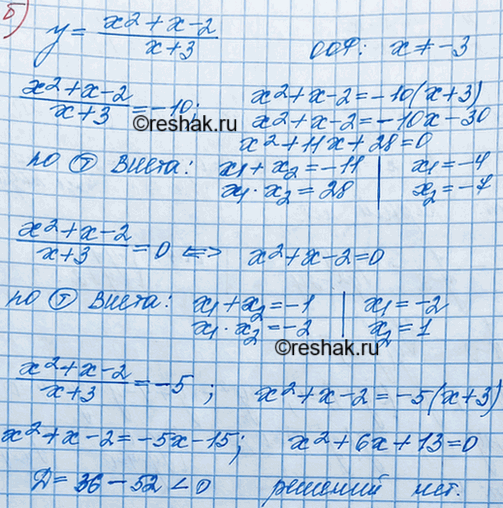 б) y = (x² + x - 2)/(x + 3)    ООФ: x ≠ -3
(x² + x - 2)/(x + 3) = -10;    x² + x - 2 = -10(x + 3)
x² + x - 2 = -10x - 30
©reshak.ru
x² + 11x + 28 = 0
по Ⓣ Виета: x₁ + x₂ = -11 | x₁ = -4
x₁ · x₂ = 28 | x₂ = -7
(x² + x - 2)/(x + 3) = 0 <=> x² + x - 2 = 0
по Ⓣ Виета: x₁ + x₂ = -1 | x₁ = -2
x₁ · x₂ = -2 | x₂ = 1
©reshak.ru
(x² + x - 2)/(x + 3) = -5;    x² + x - 2 = -5(x + 3)
x² + x - 2 = -5x - 15;    x² + 6x + 13 = 0
Д = 36 - 52 < 0    решений нет.